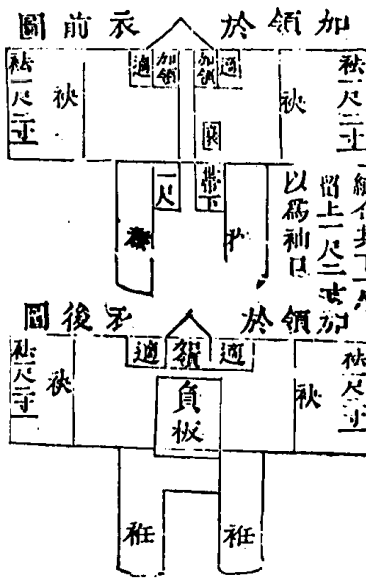 加領於衣前圖
袪一尺二寸
袂
適
加領
加領
適
袂
袪一尺二寸
衰
縫合其下一
留上一尺二寸
以爲袖口
帶下
一尺
加領於衣後圖
袪一尺二寸
袂
適
領
適
袂
袪一尺二寸
負板
衽
衽